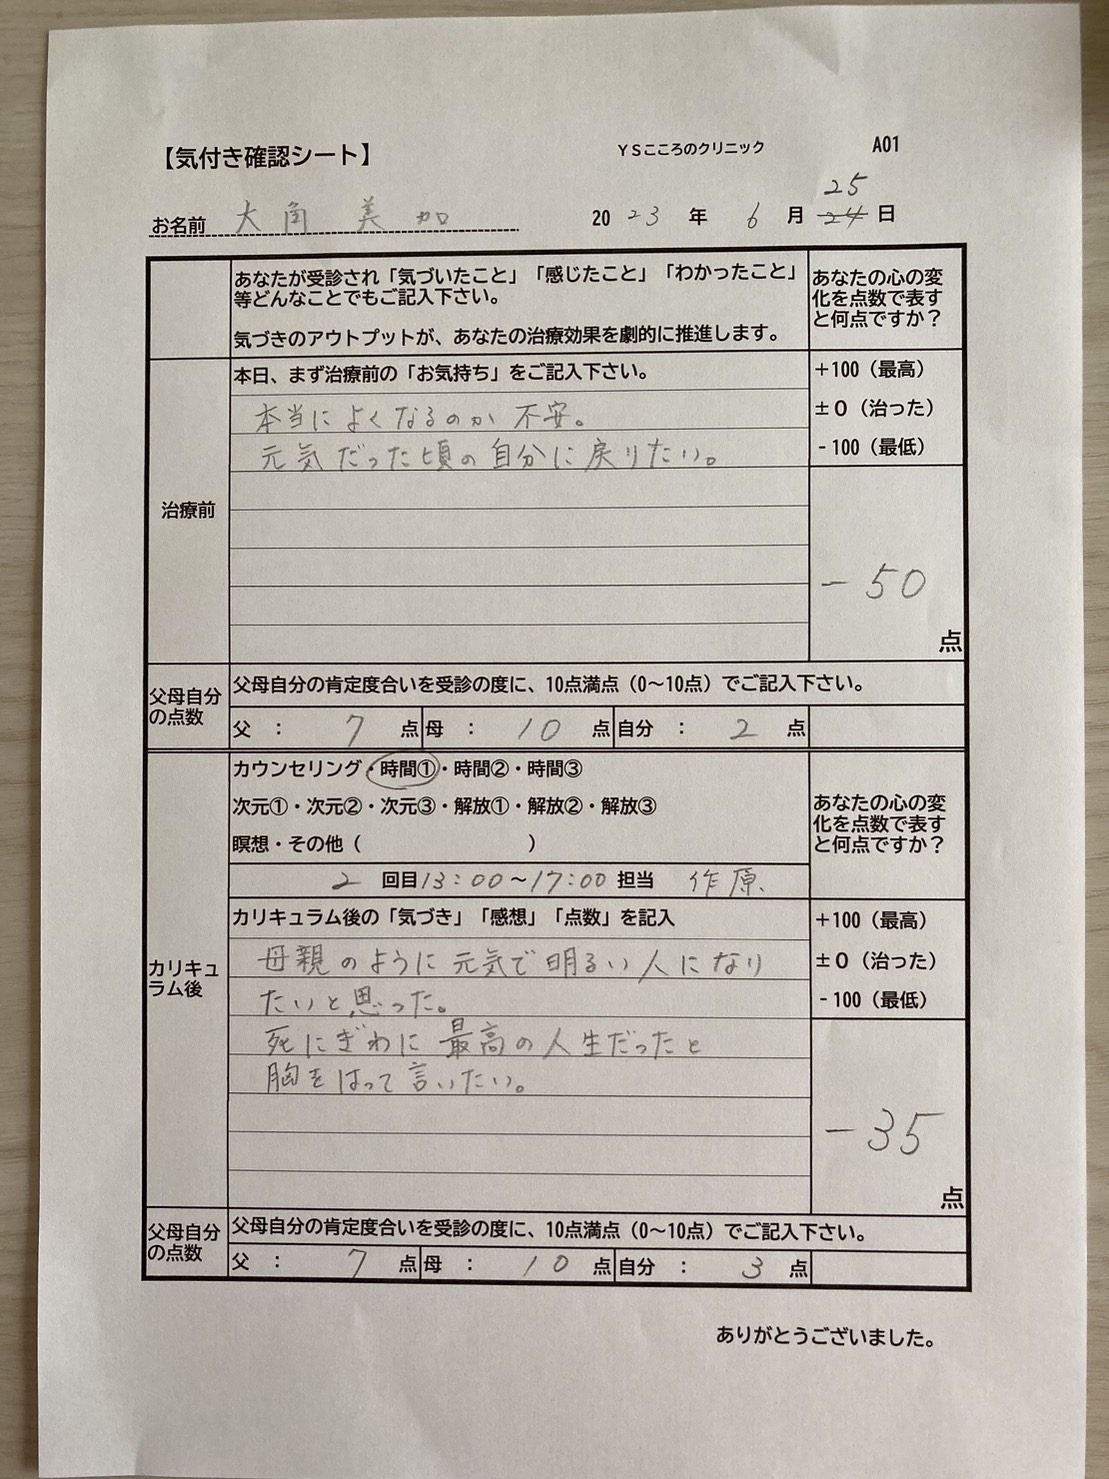 【気付き確認シート】
YSこころのクリニック
A01
お名前 大角 美加
2023年 6月 24 25日
あなたが受診され「気づいたこと」「感じたこと」「わかったこと」
等どんなことでもご記入下さい。
気づきのアウトプットが、あなたの治療効果を劇的に推進します。
あなたの心の変
化を点数で表す
と何点ですか？
治療前
本日、まず治療前の「お気持ち」をご記入下さい。
本当によくなるのか不安。
元気だった頃の自分に戻りたい。
+100（最高）
±0（治った）
-100（最低）
-50
点
父母自分
の点数
父母自分の肯定度合いを受診の度に、10点満点（0〜10点）でご記入下さい。
父 ： 7 点 母 ： 10 点 自分 ： 2 点
カリキュ
ラム後
カウンセリング・時間①・時間②・時間③
次元①・次元②・次元③・解放①・解放②・解放③
瞑想・その他（ ）
2 回目 13:00〜17:00 担当 作原
あなたの心の変
化を点数で表す
と何点ですか？
カリキュラム後の「気づき」「感想」「点数」を記入
母親のように元気で明るい人になり
たいと思った。
死にぎわに最高の人生だったと
胸をはって言いたい。
+100（最高）
±0（治った）
-100（最低）
-35
点
父母自分
の点数
父母自分の肯定度合いを受診の度に、10点満点（0〜10点）でご記入下さい。
父 ： 7 点 母 ： 10 点 自分 ： 3 点
ありがとうございました。